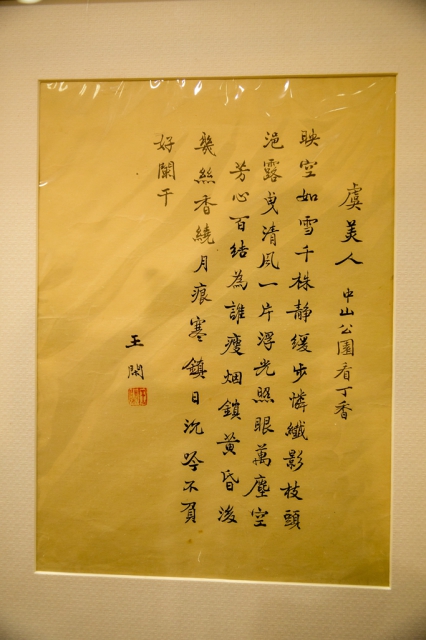 虞美人 中山公園看丁香
映空如雪千株静緩步憐纖影枝頭
浥露曳清風一片浮光照眼萬塵空
芳心百結為誰瘦烟鎖黄昏後
幾絲香繞月痕寒鎮日沉吟不負
好闌干
王閑